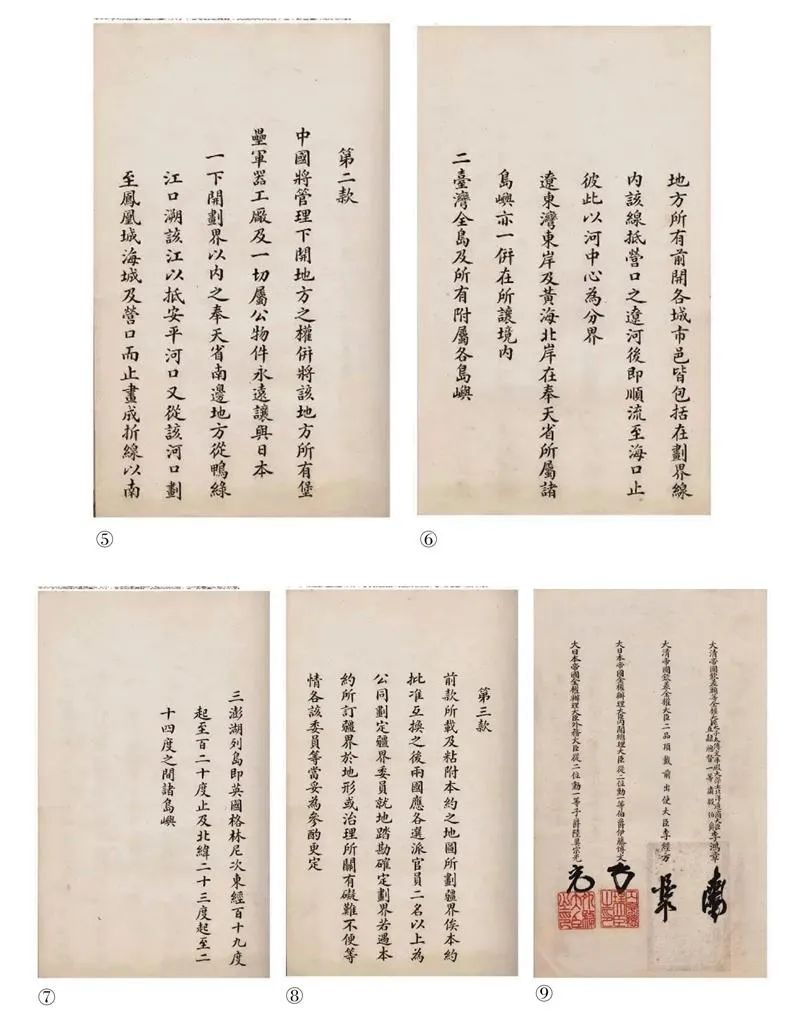 第二款
中國將管理下開地方之權併將該地方所有堡
壘軍器工廠及一切屬公物件永遠讓與日本
一下開劃界以內之奉天省南邊地方從鴨綠
江口溯該江以抵安平河口又從該河口劃
至鳳凰城海城及營口而止畫成折線以南
⑤
地方所有前開各城市邑皆包括在劃界線
內該線抵營口之遼河後即順流至海口止
彼此以河中心為分界
遼東灣東岸及黃海北岸在奉天省所屬諸
島嶼亦一併在所讓境內
二臺灣全島及所有附屬各島嶼
⑥
三澎湖列島即英國格林尼次東經百十九度
起至百二十度止及北緯二十三度起至二
十四度之間諸島嶼
⑦
第三款
前款所載及粘附本約之地圖所劃疆界俟本約
批准互換之後兩國應各選派官員二名以上為
公同劃定疆界委員就地踏勘確定劃界若遇本
約所訂疆界於地形或治理所關有礙難不便等
情各該委員等當妥為參酌更定
⑧
大清帝國欽差頭等全權大臣太子太傅文華殿大學士北洋通商大臣直隸總督一等肅毅伯爵李鴻章
大清帝國欽差全權大臣二品頂戴前出使大臣李經方
大日本帝國全權辦理大臣內閣總理大臣從二位勳一等伯爵伊藤博文
大日本帝國全權辦理大臣外務大臣從二位勳一等子爵陸奧宗光
⑨